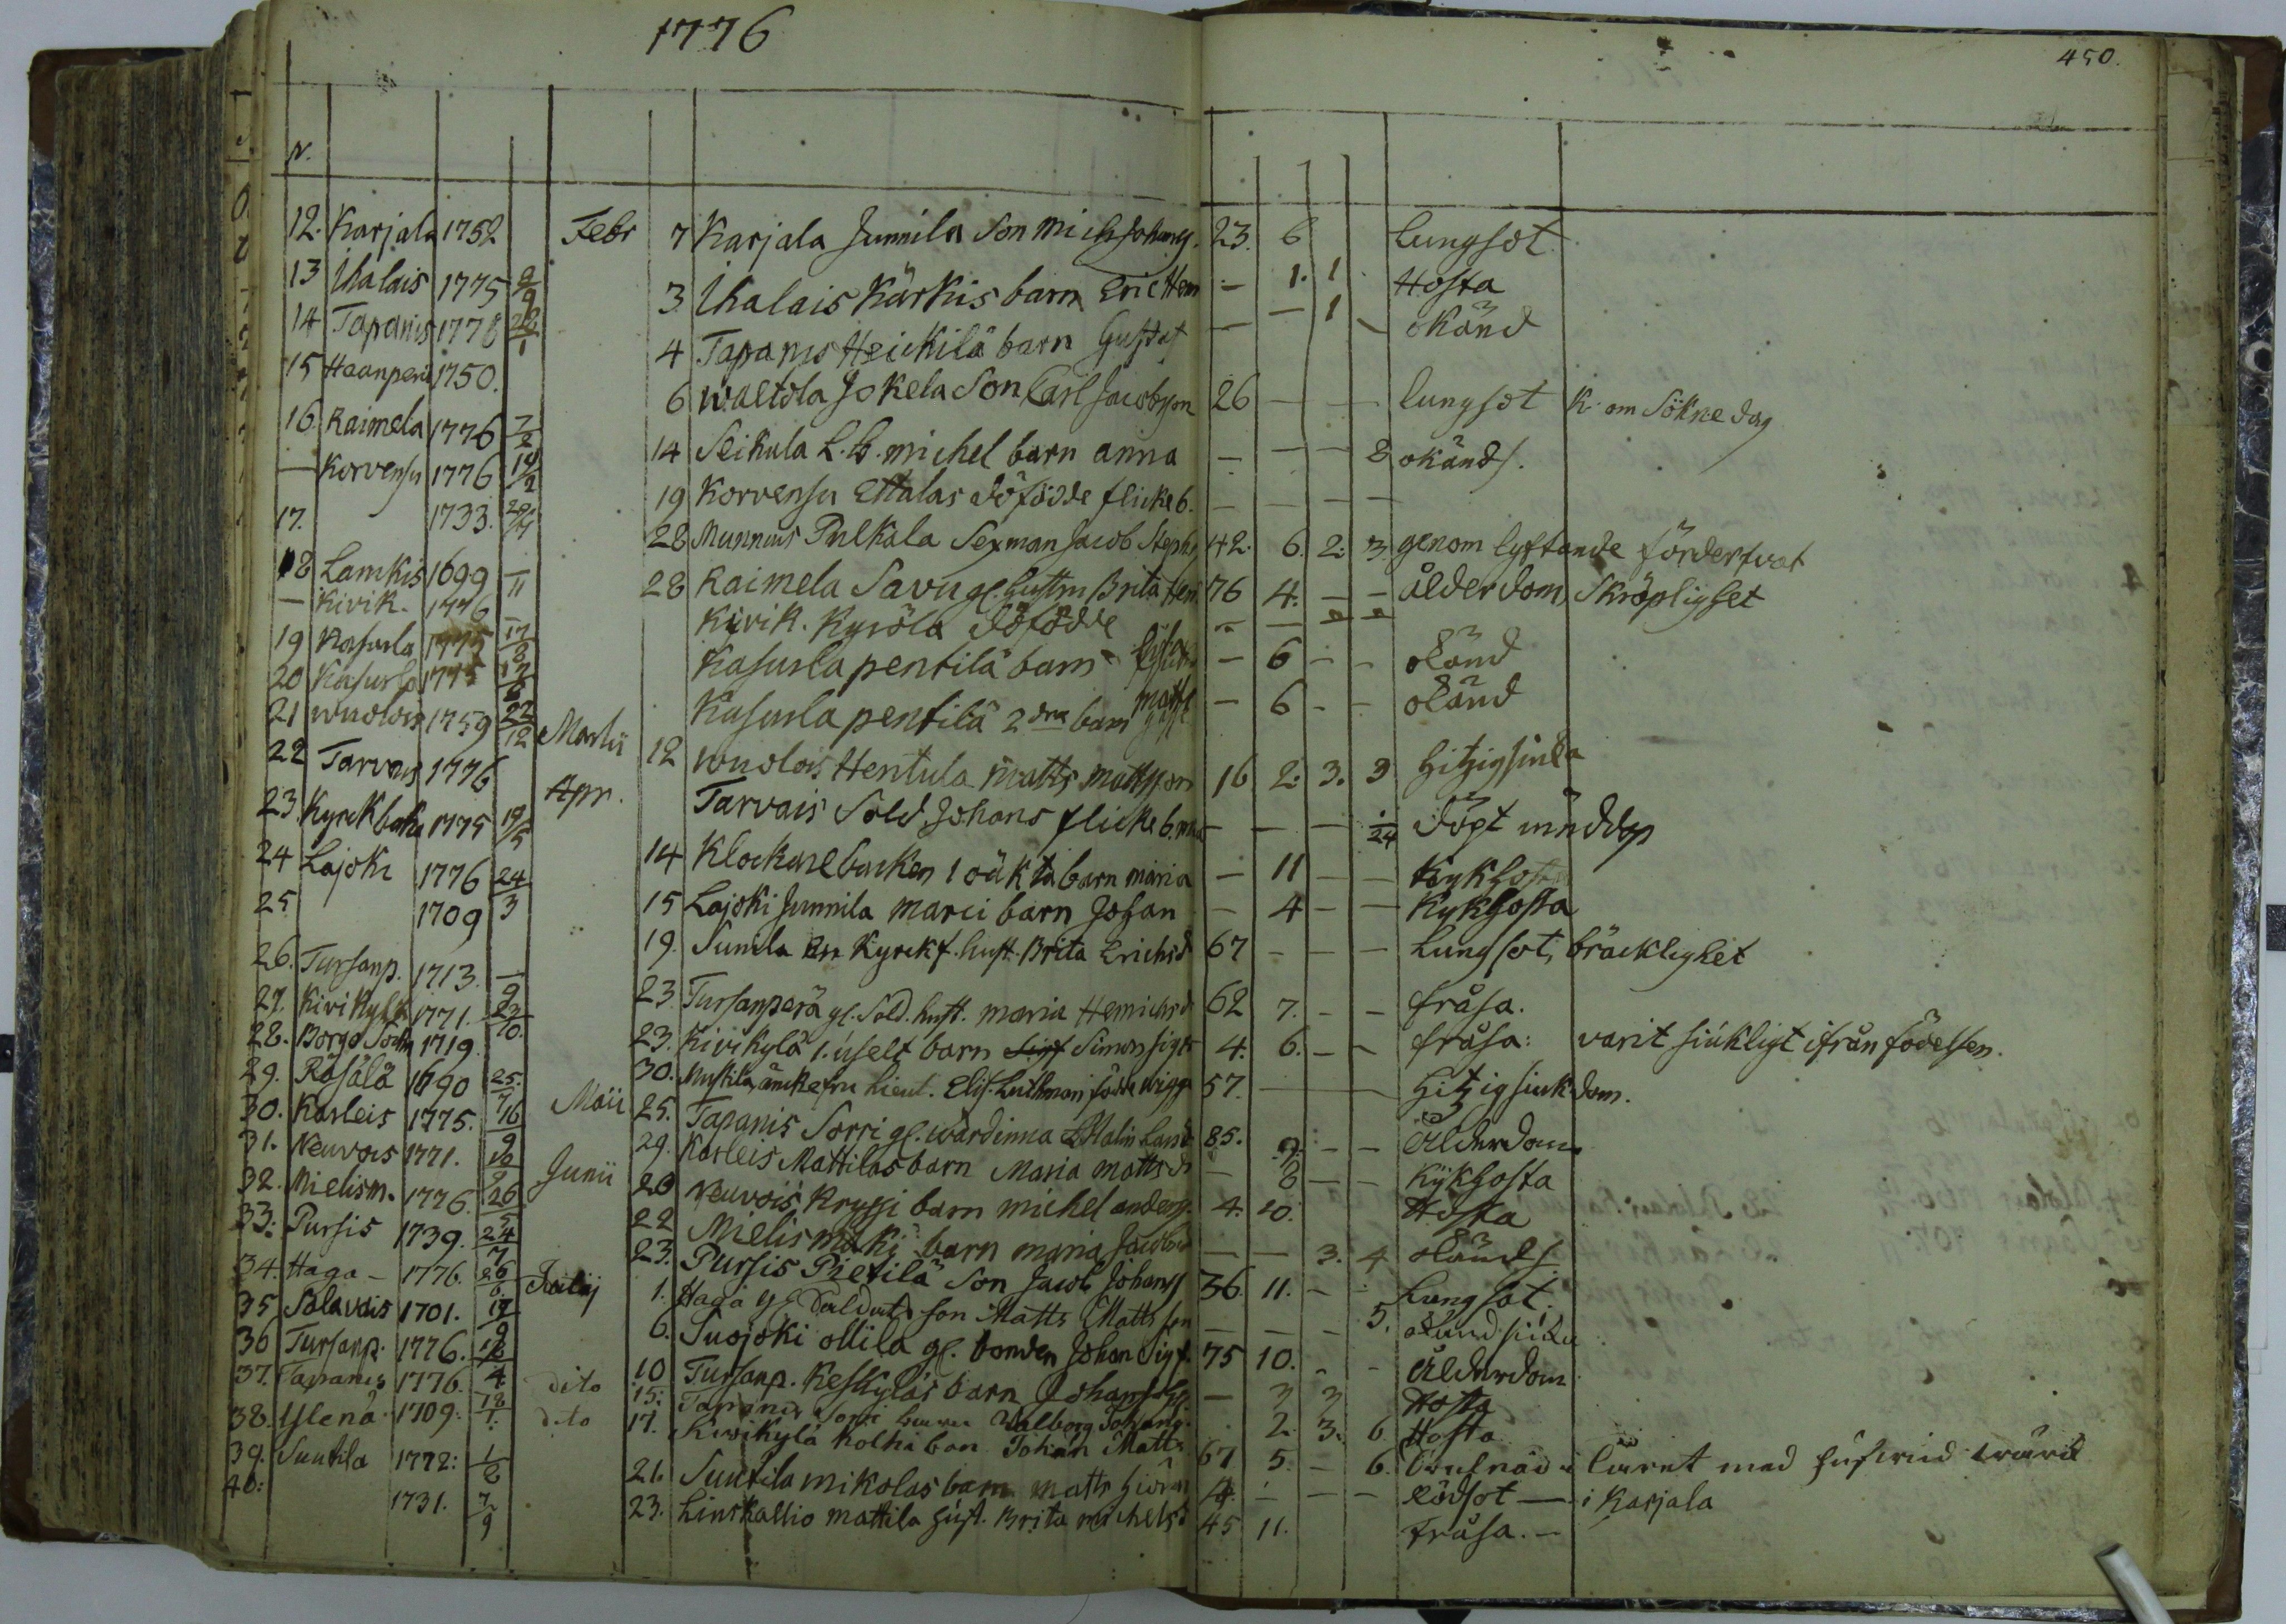 1776
450.
N.
12. Karjala 1752 Febr 7 Karjala Junnila Son Mich Johans. 23. 6 Lungsot
13 Ihalais 1775 2/9 3 Ihalais Kärkis barn Eric Hen - 1. 1 Hosta
14 Tapanis 1778 28/1 4 Tapanis Heickilä barn Gustaf - - 1 - okänd
15 Haanperä 1750. 6 Waltola Jokela Son Carl Jacobsson 26 - - lungsot K. om Söknedag
16. Raimela 1776 7/2 14 Seikula L. b. michel barn anna - - - 8 okänd s.
- Korvensu 1776 19/2 19 Korvensu Ettalas döfödde flicke b. - - - -
17. 1733. 28 Munnuis Pulkala Sexman Jacob Steph 42. 6. 2. 3. genom lyftande förderfvat
18 Lamkis 1699 -/11 28 Raimela Savu gl. hustru Brita Hen 76 4. - - ålderdom, skröplighet
- Kivik. 1776 - Kivik. Kyrölä döfödde - - - -
19 Kasurla 1775 17/8 Kasurla pentilä barn - 6 - - okänd
20 Kasurla 1775 17/8 Kasurla pentilä 2dra barn matts - 6 - - okänd
21 Wuolois 1759 22/12 Martii 12 Wuolois Hentula matts mattsson 16 2. 3. 9 hitzigsiuka
22 Tarvais 1776 Apr. Tarvais Sold. Johans flicke b. - - - 1/24 döpt nöddop
23. Kyrckbacka 1775 19/5 14 Klockarebacken 1 oäkta barn maria - 11 - - Kykhosta
24 Lajoki 1776 24/3 15 Lajoki Junnila marci barn Johan - 4 - - Kykhosta
25 1709 19. Sunila Kyrckf. hust. Brita Erichsd 67 - - - Lungsot, bräcklighet
26. Tursanp. 1713. -/9 23. Tursanperä gl. Sold. hust. maria Henrichsd 62 7. - - fråsa.
27. Kivikylä 1771. 23/10. 23. Kivikylä 1. uselt barn Simon sigfr 4. 6. - - fråsa: varit siukligt ifrån födelsen.
28. Borgo Sochn 1719. 30. Muskila änkefru Lieut. Elis. Luthman född wigga 57. - hitzig siukdom.
29. Räsälä 1690 25/7 Maii 25. Tapanis Sorri gl. wärdinna Malin Larsd 85. 9. - - Ålderdom
30. Karleis 1775. 16/9 29. Karleis Mattilas barn Maria mattsd - 8 - - Kykhosta
31. Neuvois 1771. Junii 20 Neuvois Kryssi barn michel anders. 4. 10. Hosta
32. Mielism. 1776. 26/5 22 Mielismäki barn maria Jacobsd - - 3. 4 okänd s.
33. Pursis 1739. 24/7 23. Pursis Pietilä Son Jacob Johans 36. 11. - Lungsot.
34. Haga - 1776. 26/6. Julij 1. Haga gl. Saldats son Matts Mattsson - - - 5. okänd siuka
35 Solavais 1701. 6. Suojoki ollila gl. bonden Johan Sigf. 75 10. - - Ålderdom
36 Tursanp. 1776. dito 10 Tursanp. Keskyläs barn Johan - 3 3 Hosta
37. Tapanis 1776. 4. dito 15. Tapanis Sorri Walborg Johans. 2. 3. 6 Hosta
38. Ylenä. 1709. 18/1. 17. Kivikylä Kolki bon Johan Matts 67 5. - 6. med
39. Suutila 1772: 1/8 21. Suutila mikolas barn matts 4. - - - Rödsot - i Karjala
40: 1731. 7/9 23. Linskallio mattila hust. Brita michelsd 45 11. fråsa. -